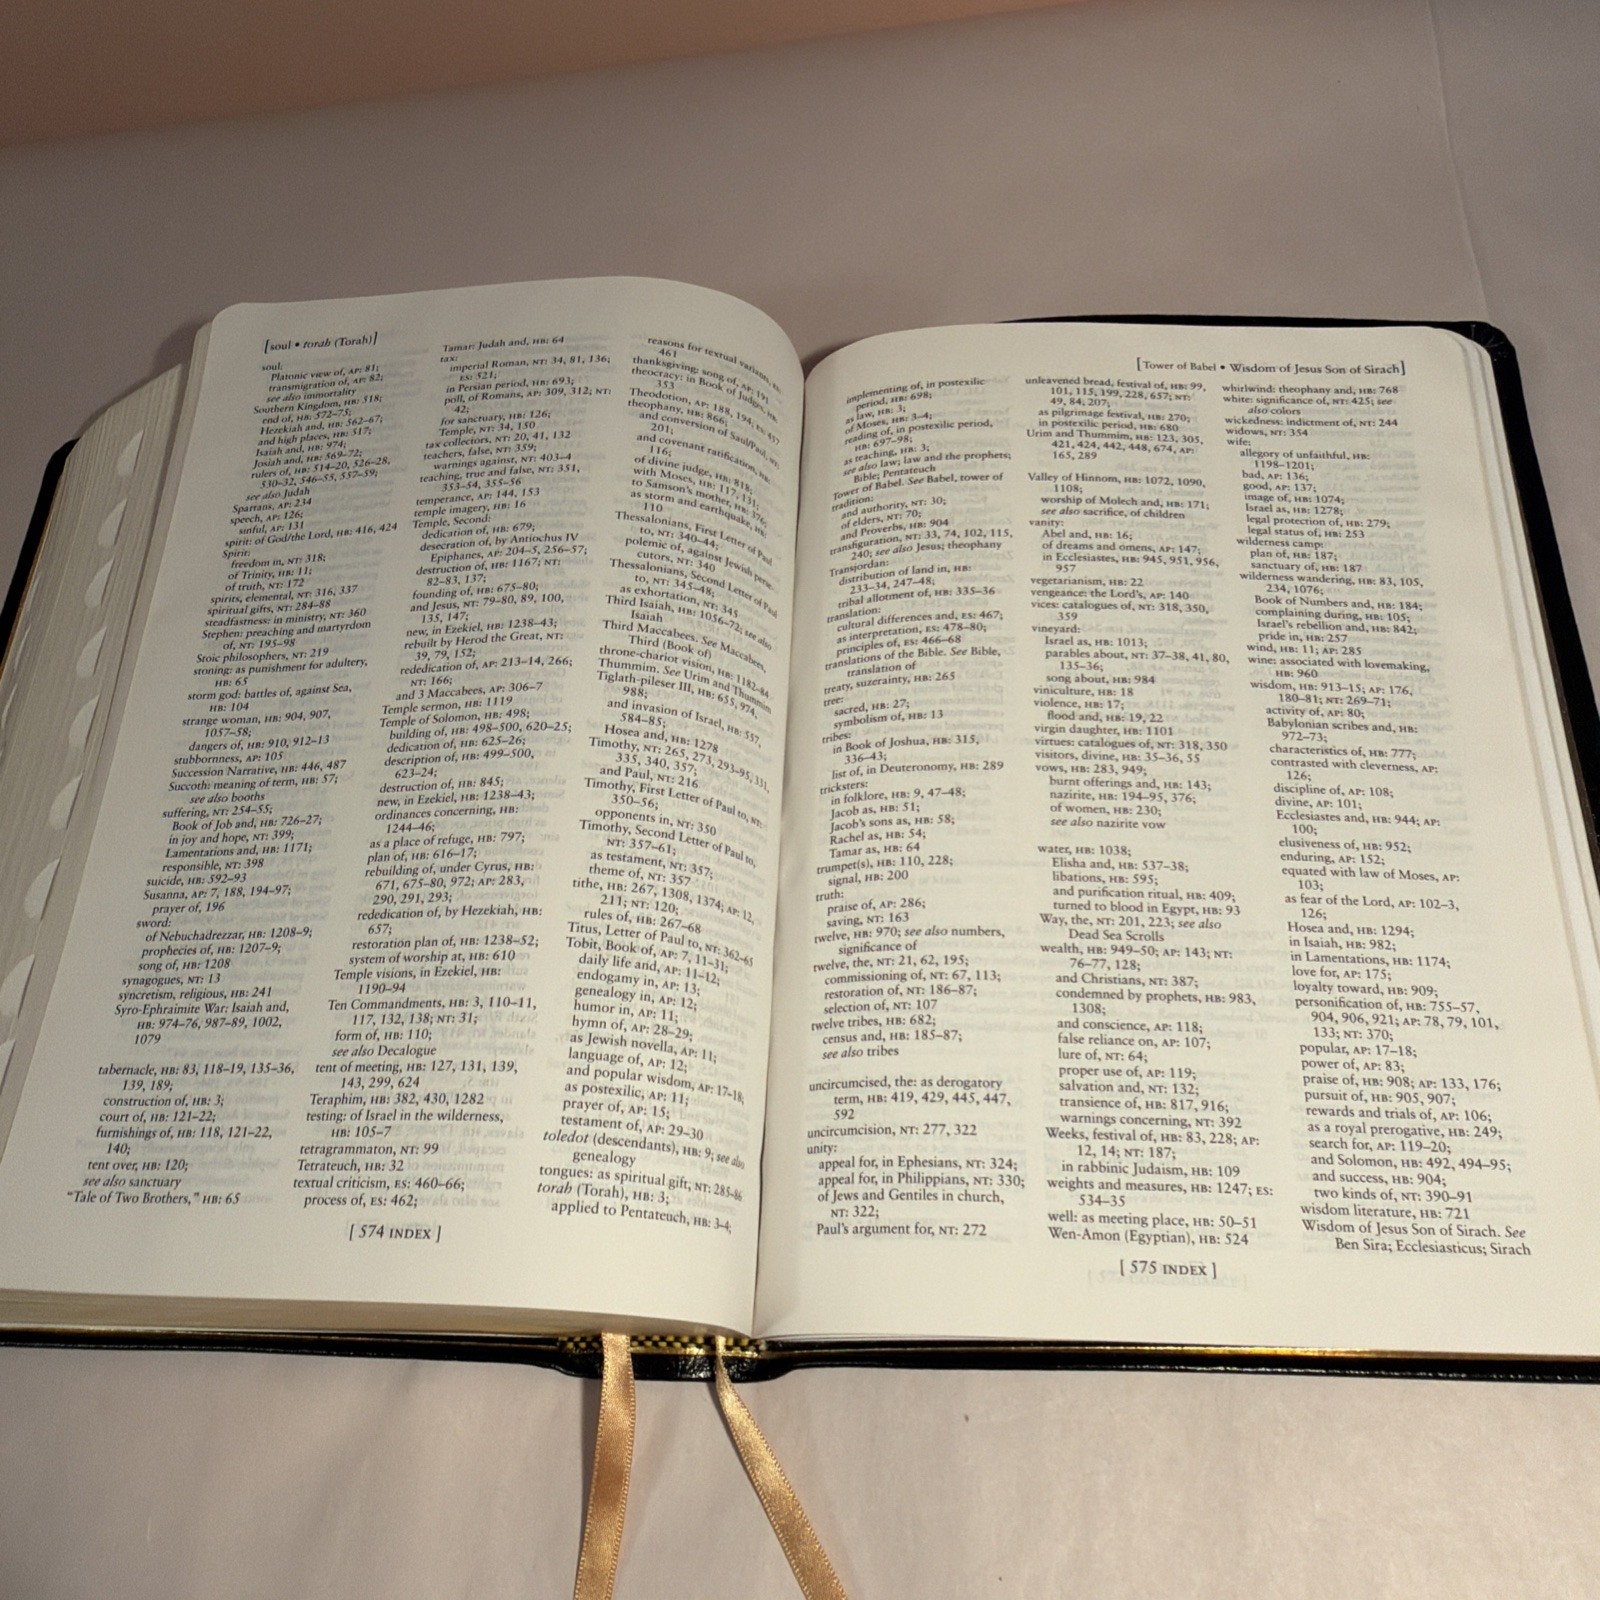 [soul • torah (Torah)]
soul:
Platonic view of, AP: 81;
transmigration of, AP: 82;
see also immortality
Southern Kingdom, HB: 518;
end of, HB: 572–75;
Hezekiah and, HB: 562–67;
and high places, HB: 517;
Isaiah and, HB: 974;
Josiah and, HB: 569–72;
rulers of, HB: 514–20, 526–28,
530–32, 546–55, 557–59;
see also Judah
Spartans, AP: 234
speech, AP: 126;
sinful, AP: 131
spirit of God/the Lord, HB: 416, 424
Spirit:
freedom in, NT: 318;
of Trinity, HB: 11;
of truth, NT: 172
spirits, elemental, NT: 316, 337
spiritual gifts, NT: 284–88
steadfastness: in ministry, NT: 360
Stephen: preaching and martyrdom
of, NT: 195–98
Stoic philosophers, NT: 219
stoning: as punishment for adultery,
HB: 65
storm god: battles of, against Sea,
HB: 104
strange woman, HB: 904, 907,
1057–58;
dangers of, HB: 910, 912–13
stubbornness, AP: 105
Succession Narrative, HB: 446, 487
Succoth: meaning of term, HB: 57;
see also booths
suffering, NT: 254–55;
Book of Job and, HB: 726–27;
in joy and hope, NT: 399;
Lamentations and, HB: 1171;
responsible, NT: 398
suicide, HB: 592–93
Susanna, AP: 7, 188, 194–97;
prayer of, 196
sword:
of Nebuchadrezzar, HB: 1208–9;
prophecies of, HB: 1207–9;
song of, HB: 1208
synagogues, NT: 13
syncretism, religious, HB: 241
Syro-Ephraimite War: Isaiah and,
HB: 974–76, 987–89, 1002,
1079
tabernacle, HB: 83, 118–19, 135–36,
139, 189;
construction of, HB: 3;
court of, HB: 121–22;
furnishings of, HB: 118, 121–22,
140;
tent over, HB: 120;
see also sanctuary
"Tale of Two Brothers," HB: 65
Tamar: Judah and, HB: 64
tax:
imperial Roman, NT: 34, 81, 136;
ES: 521;
in Persian period, HB: 693;
poll, of Romans, AP: 309, 312; NT:
42;
for sanctuary, HB: 126;
Temple, NT: 34, 150
tax collectors, NT: 20, 41, 132
teachers, false, NT: 359;
warnings against, NT: 403–4
teaching, true and false, NT: 351,
353–54, 355–56
temperance, AP: 144, 153
temple imagery, HB: 16
Temple, Second:
dedication of, HB: 679;
desecration of, by Antiochus IV
Epiphanes, AP: 204–5, 256–57;
destruction of, HB: 1167; NT:
82–83, 137;
founding of, HB: 675–80;
and Jesus, NT: 79–80, 89, 100,
135, 147;
new, in Ezekiel, HB: 1238–43;
rebuilt by Herod the Great, NT:
39, 79, 152;
rededication of, AP: 213–14, 266;
NT: 166;
and 3 Maccabees, AP: 306–7
Temple sermon, HB: 1119
Temple of Solomon, HB: 498;
building of, HB: 498–500, 620–25;
dedication of, HB: 625–26;
description of, HB: 499–500,
623–24;
destruction of, HB: 845;
new, in Ezekiel, HB: 1238–43;
ordinances concerning, HB:
1244–46;
as a place of refuge, HB: 797;
plan of, HB: 616–17;
rebuilding of, under Cyrus, HB:
671, 675–80, 972; AP: 283,
290, 291, 293;
rededication of, by Hezekiah, HB:
657;
restoration plan of, HB: 1238–52;
system of worship at, HB: 610
Temple visions, in Ezekiel, HB:
1190–94
Ten Commandments, HB: 3, 110–11,
117, 132, 138; NT: 31;
form of, HB: 110;
see also Decalogue
tent of meeting, HB: 127, 131, 139,
143, 299, 624
Teraphim, HB: 382, 430, 1282
testing: of Israel in the wilderness,
HB: 105–7
tetragrammaton, NT: 99
Tetrateuch, HB: 32
textual criticism, ES: 460–66;
process of, ES: 462;
reasons for textual variants,
461
thanksgiving: song of, AP: 191
theocracy: in Book of Judges, HB:
353
Theodotion, AP: 188, 194; ES: 457
theophany, HB: 866;
and conversion of Saul/Paul, NT:
201;
and covenant ratification, HB:
116;
of divine judge, HB: 818;
with Moses, HB: 117, 131;
to Samson's mother, HB: 376;
as storm and earthquake, HB:
110
Thessalonians, First Letter of Paul
to, NT: 340–44;
polemic of, against Jewish perse-
cutors, NT: 340
Thessalonians, Second Letter of Paul
to, NT: 345–48;
as exhortation, NT: 345
Third Isaiah, HB: 1056–72; see also
Isaiah
Third Maccabees. See Maccabees,
Third (Book of)
throne-chariot vision, HB: 1182–84
Thummim. See Urim and Thummim
Tiglath-pileser III, HB: 655, 974,
988;
and invasion of Israel, HB: 557,
584–85;
Hosea and, HB: 1278
Timothy, NT: 265, 273, 293–95, 331,
335, 340, 357;
and Paul, NT: 216
Timothy, First Letter of Paul to, NT:
350–56;
opponents in, NT: 350
Timothy, Second Letter of Paul to,
NT: 357–61;
as testament, NT: 357;
theme of, NT: 357
tithe, HB: 267, 1308, 1374; AP: 12,
211; NT: 120;
rules of, HB: 267–68
Titus, Letter of Paul to, NT: 362–65
Tobit, Book of, AP: 7, 11–31;
daily life and, AP: 11–12;
endogamy in, AP: 13;
genealogy in, AP: 12;
humor in, AP: 11;
hymn of, AP: 28–29;
as Jewish novella, AP: 11;
language of, AP: 12;
and popular wisdom, AP: 17–18;
as postexilic, AP: 11;
prayer of, AP: 15;
testament of, AP: 29–30
toledot (descendants), HB: 9; see also
genealogy
tongues: as spiritual gift, NT: 285–86
torah (Torah), HB: 3;
applied to Pentateuch, HB: 3–4;
[ 574 INDEX ]
[Tower of Babel • Wisdom of Jesus Son of Sirach]
implementing of, in postexilic
period, HB: 698;
as law, HB: 3;
of Moses, HB: 3–4;
reading of, in postexilic period,
HB: 697–98;
as teaching, HB: 3;
see also law; law and the prophets;
Bible; Pentateuch
Tower of Babel. See Babel, tower of
tradition:
and authority, NT: 30;
of elders, NT: 70;
and Proverbs, HB: 904
transfiguration, NT: 33, 74, 102, 115,
240; see also Jesus; theophany
Transjordan:
distribution of land in, HB:
233–34, 247–48;
tribal allotment of, HB: 335–36
translation:
cultural differences and, ES: 467;
as interpretation, ES: 478–80;
principles of, ES: 466–68
translations of the Bible. See Bible,
translation of
treaty, suzerainty, HB: 265
tree:
sacred, HB: 27;
symbolism of, HB: 13
tribes:
in Book of Joshua, HB: 315,
336–43;
list of, in Deuteronomy, HB: 289
tricksters:
in folklore, HB: 9, 47–48;
Jacob as, HB: 51;
Jacob's sons as, HB: 58;
Rachel as, HB: 54;
Tamar as, HB: 64
trumpet(s), HB: 110, 228;
signal, HB: 200
truth:
praise of, AP: 286;
saving, NT: 163
twelve, HB: 970; see also numbers,
significance of
twelve, the, NT: 21, 62, 195;
commissioning of, NT: 67, 113;
restoration of, NT: 186–87;
selection of, NT: 107
twelve tribes, HB: 682;
census and, HB: 185–87;
see also tribes
uncircumcised, the: as derogatory
term, HB: 419, 429, 445, 447,
592
uncircumcision, NT: 277, 322
unity:
appeal for, in Ephesians, NT: 324;
appeal for, in Philippians, NT: 330;
of Jews and Gentiles in church,
NT: 322;
Paul's argument for, NT: 272
unleavened bread, festival of, HB: 99,
101, 115, 199, 228, 657; NT:
49, 84, 207;
as pilgrimage festival, HB: 270;
in postexilic period, HB: 680
Urim and Thummim, HB: 123, 305,
421, 424, 442, 448, 674, AP:
165, 289
Valley of Hinnom, HB: 1072, 1090,
1108;
worship of Molech and, HB: 171;
see also sacrifice, of children
vanity:
Abel and, HB: 16;
of dreams and omens, AP: 147;
in Ecclesiastes, HB: 945, 951, 956,
957
vegetarianism, HB: 22
vengeance: the Lord's, AP: 140
vices: catalogues of, NT: 318, 350,
359
vineyard:
Israel as, HB: 1013;
parables about, NT: 37–38, 41, 80,
135–36;
song about, HB: 984
viniculture, HB: 18
violence, HB: 17;
flood and, HB: 19, 22
virgin daughter, HB: 1101
virtues: catalogues of, NT: 318, 350
visitors, divine, HB: 35–36, 55
vows, HB: 283, 949;
burnt offerings and, HB: 143;
nazirite, HB: 194–95, 376;
of women, HB: 230;
see also nazirite vow
water, HB: 1038;
Elisha and, HB: 537–38;
libations, HB: 595;
and purification ritual, HB: 409;
turned to blood in Egypt, HB: 93
Way, the, NT: 201, 223; see also
Dead Sea Scrolls
wealth, HB: 949–50; AP: 143; NT:
76–77, 128;
and Christians, NT: 387;
condemned by prophets, HB: 983,
1308;
and conscience, AP: 118;
false reliance on, AP: 107;
lure of, NT: 64;
proper use of, AP: 119;
salvation and, NT: 132;
transience of, HB: 817, 916;
warnings concerning, NT: 392
Weeks, festival of, HB: 83, 228; AP:
12, 14; NT: 187;
in rabbinic Judaism, HB: 109
weights and measures, HB: 1247; ES:
534–35
well: as meeting place, HB: 50–51
Wen-Amon (Egyptian), HB: 524
whirlwind: theophany and, HB: 768
white: significance of, NT: 425; see
also colors
wickedness: indictment of, NT: 244
widows, NT: 354
wife:
allegory of unfaithful, HB:
1198–1201;
bad, AP: 136;
good, AP: 137;
image of, HB: 1074;
Israel as, HB: 1278;
legal protection of, HB: 279;
legal status of, HB: 253
wilderness camp:
plan of, HB: 187;
sanctuary of, HB: 187
wilderness wandering, HB: 83, 105,
234, 1076;
Book of Numbers and, HB: 184;
complaining during, HB: 105;
Israel's rebellion and, HB: 842;
pride in, HB: 257
wind, HB: 11; AP: 285
wine: associated with lovemaking,
HB: 960
wisdom, HB: 913–15; AP: 176,
180–81; NT: 269–71;
activity of, AP: 80;
Babylonian scribes and, HB:
972–73;
characteristics of, HB: 777;
contrasted with cleverness, AP:
126;
discipline of, AP: 108;
divine, AP: 101;
Ecclesiastes and, HB: 944; AP:
100;
elusiveness of, HB: 952;
enduring, AP: 152;
equated with law of Moses, AP:
103;
as fear of the Lord, AP: 102–3,
126;
Hosea and, HB: 1294;
in Isaiah, HB: 982;
in Lamentations, HB: 1174;
love for, AP: 175;
loyalty toward, HB: 909;
personification of, HB: 755–57,
904, 906, 921; AP: 78, 79, 101,
133; NT: 370;
popular, AP: 17–18;
power of, AP: 83;
praise of, HB: 908; AP: 133, 176;
pursuit of, HB: 905, 907;
rewards and trials of, AP: 106;
as a royal prerogative, HB: 249;
search for, AP: 119–20;
and Solomon, HB: 492, 494–95;
and success, HB: 904;
two kinds of, NT: 390–91
wisdom literature, HB: 721
Wisdom of Jesus Son of Sirach. See
Ben Sira; Ecclesiasticus; Sirach
[ 575 INDEX ]